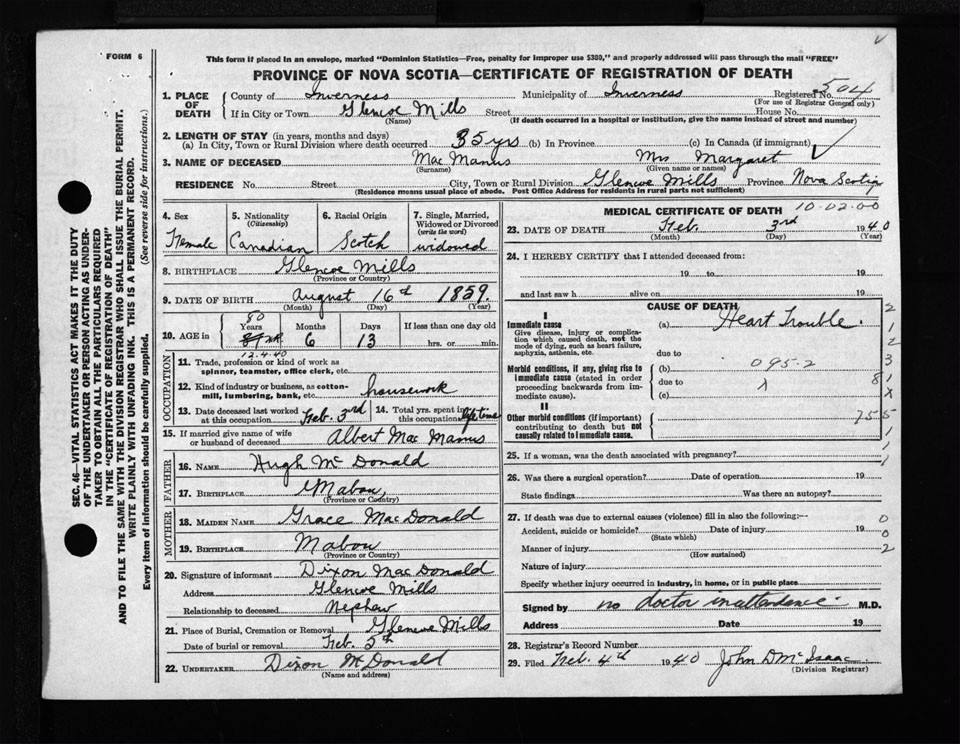 FORM 6
This form if placed in an envelope, marked "Dominion Statistics—Free, penalty for improper use $300," and properly addressed will pass through the mail "FREE"
PROVINCE OF NOVA SCOTIA—CERTIFICATE OF REGISTRATION OF DEATH
1. PLACE OF DEATH County of Inverness Municipality of Inverness Registered No. 504
(For use of Registrar General only)
If in City or Town Glencoe Mills Street House No.
(Name) (If death occurred in a hospital or institution, give the name instead of street and number)
2. LENGTH OF STAY (in years, months and days)
(a) In City, Town or Rural Division where death occurred 35 yrs (b) In Province (c) In Canada (if immigrant)
3. NAME OF DECEASED Mac Manus Mrs Margaret
(Surname) (Given name or names)
RESIDENCE No. Street City, Town or Rural Division Glencoe Mills Province Nova Scotia
(Residence means usual place of abode. Post Office Address for Residents in rural parts not sufficient)
4. Sex Female
5. Nationality (Citizenship) Canadian
6. Racial Origin Scotch
7. Single, Married, Widowed or Divorced (write the word) widowed
8. BIRTHPLACE Glencoe Mills
(Province or Country)
9. DATE OF BIRTH August 16th 1859
(Month) (Day) (Year)
10. AGE in 80 Years Months 6 Days 13 If less than one day old hrs. or min.
12.4.40
OCCUPATION
11. Trade, profession or kind of work as spinner, teamster, office clerk, etc.
12. Kind of industry or business, as cotton-mill, lumbering, bank, etc. housework
13. Date deceased last worked at this occupation Feb. 3rd
14. Total yrs. spent in this occupation lifetime
15. If married give name of wife or husband of deceased Albert Mac Manus
FATHER
16. NAME Hugh McDonald
17. BIRTHPLACE Mabou,
(Province or Country)
MOTHER
18. MAIDEN NAME Grace MacDonald
19. BIRTHPLACE Mabou
(Province or Country)
20. Signature of informant Dixon MacDonald
Address Glencoe Mills
Relationship to deceased Nephew
21. Place of Burial, Cremation or Removal Glencoe Mills
Date of burial or removal Feb. 5th
22. UNDERTAKER Dixon McDonald
(Name and address)
MEDICAL CERTIFICATE OF DEATH 10-02-00
23. DATE OF DEATH Feb. 3rd 1940
(Month) (Day) (Year)
24. I HEREBY CERTIFY that I attended deceased from:
19 to 19
and last saw h alive on 19
CAUSE OF DEATH
I
Immediate cause
Give disease, injury or complication which caused death, not the mode of dying, such as heart failure, asphyxia, asthenia, etc.
(a) Heart Trouble.
due to
Morbid conditions, if any, giving rise to immediate cause (stated in order proceeding backwards from immediate cause).
(b) 095-2
due to
(c)
II
Other morbid conditions (if important) contributing to death but not causally related to immediate cause.
25. If a woman, was the death associated with pregnancy?
26. Was there a surgical operation? Date of operation 19
State findings Was there an autopsy?
27. If death was due to external causes (violence) fill in also the following:—
Accident, suicide or homicide? Date of injury 19
(State which)
Manner of injury
(How sustained)
Nature of injury
Specify whether injury occurred in industry, in home, or in public place
Signed by no doctor in attendance M.D.
Address Date 19
28. Registrar's Record Number
29. Filed Feb. 4th 1940 John D McIsaac
(Division Registrar)
SEC. 46—VITAL STATISTICS ACT MAKES IT THE DUTY
OF THE UNDERTAKER OR PERSON ACTING AS UNDER-
TAKER TO OBTAIN ALL THE PARTICULARS REQUIRED
IN THE "CERTIFICATE OF REGISTRATION OF DEATH"
AND TO FILE THE SAME WITH THE DIVISION REGISTRAR WHO SHALL ISSUE THE BURIAL PERMIT.
WRITE PLAINLY WITH UNFADING INK. THIS IS A PERMANENT RECORD.
Every item of information should be carefully supplied. (See reverse side for instructions.)